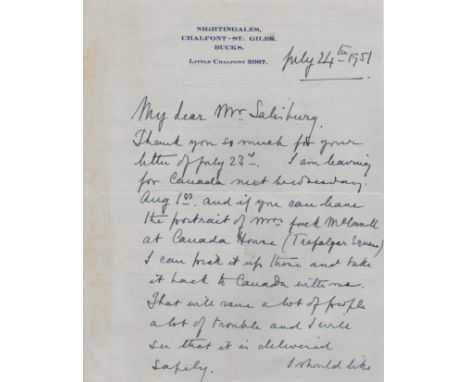 NIGHTINGALES,
CHALFONT-ST. GILES,
BUCKS.
LITTLE CHALFONT 2087.
July 24th 1951
My dear Mr Salisbury.
Thank you so much for your
letter of July 23rd. I am leaving
for Canada next Wednesday.
Aug 1st. and if you can leave
the portrait of Mrs Jack McConnell
at Canada House (Trafalgar Square)
I can pick it up there and take
it back to Canada with me.
That will save a lot of people
a lot of trouble and I will
see that it is delivered
safely. I should like